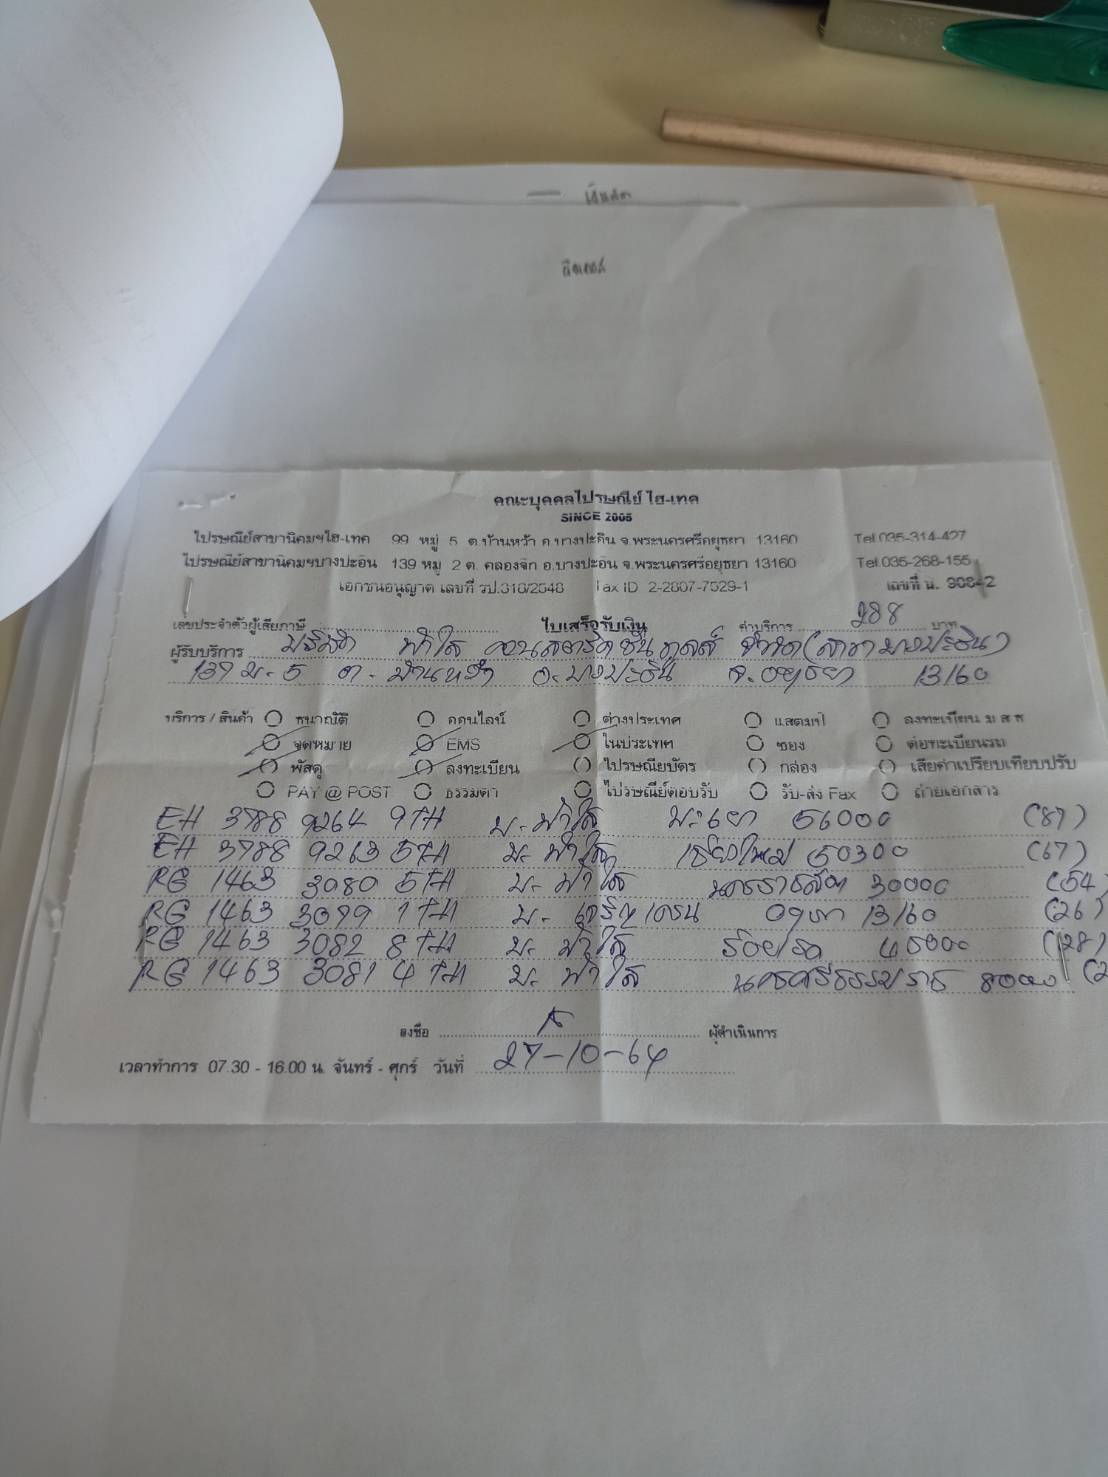 คณะบุคคลไปรษณีย์ ไฮ-เทค
SINCE 2005
ไปรษณีย์สาขานิคมฯไฮ-เทค 99 หมู่ 5 ต.บ้านหว้า อ.บางปะอิน จ.พระนครศรีอยุธยา 13160 Tel.035-314-427
ไปรษณีย์สาขานิคมฯบางปะอิน 139 หมู่ 2 ต. คลองจิก อ.บางปะอิน จ.พระนครศรีอยุธยา 13160 Tel.035-268-155
เอกชนอนุญาต เลขที่ วป.318/2548 Tax ID 2-2807-7529-1 เลขที่ น. 308-2
เลขประจำตัวผู้เสียภาษี ใบเสร็จรับเงิน ค่าบริการ 288 บาท
ผู้รับบริการ บริษัท ฟ้าใส คอนสตรัคชั่น ทูลส์ จำกัด (สาขาบางปะอิน)
139 ม. 5 ต. บ้านหว้า อ. บางปะอิน จ. อยุธยา 13160
บริการ / สินค้า ธนาณัติ ออนไลน์ ต่างประเทศ แสตมป์ ลงทะเบียน ม ส ธ
จดหมาย EMS ในประเทศ ซอง ต่อทะเบียนรถ
พัสดุ ลงทะเบียน ไปรษณียบัตร กล่อง เสียค่าเปรียบเทียบปรับ
PAY @ POST ธรรมดา ไปรษณีย์ตอบรับ รับ-ส่ง Fax ถ่ายเอกสาร
EH 3788 9264 9TH บ. ฟ้าใส พะเยา 56000 (87)
EH 3788 9263 5TH บ. ฟ้าใส เชียงใหม่ 50300 (67)
RG 1463 3080 5TH บ. ฟ้าใส นครราชสีมา 30000 (54
RG 1463 3079 1TH บ. เจริญเครน อยุธยา 13160 (26)
RG 1463 3082 8TH บ. ฟ้าใส ร้อยเอ็ด 45000 (28)
RG 1463 3081 4TH บ. ฟ้าใส นครศรีธรรมราช 80000 (2
ลงชื่อ ผู้ดำเนินการ
เวลาทำการ 07.30 - 16.00 น. จันทร์ - ศุกร์ วันที่ 27-10-64